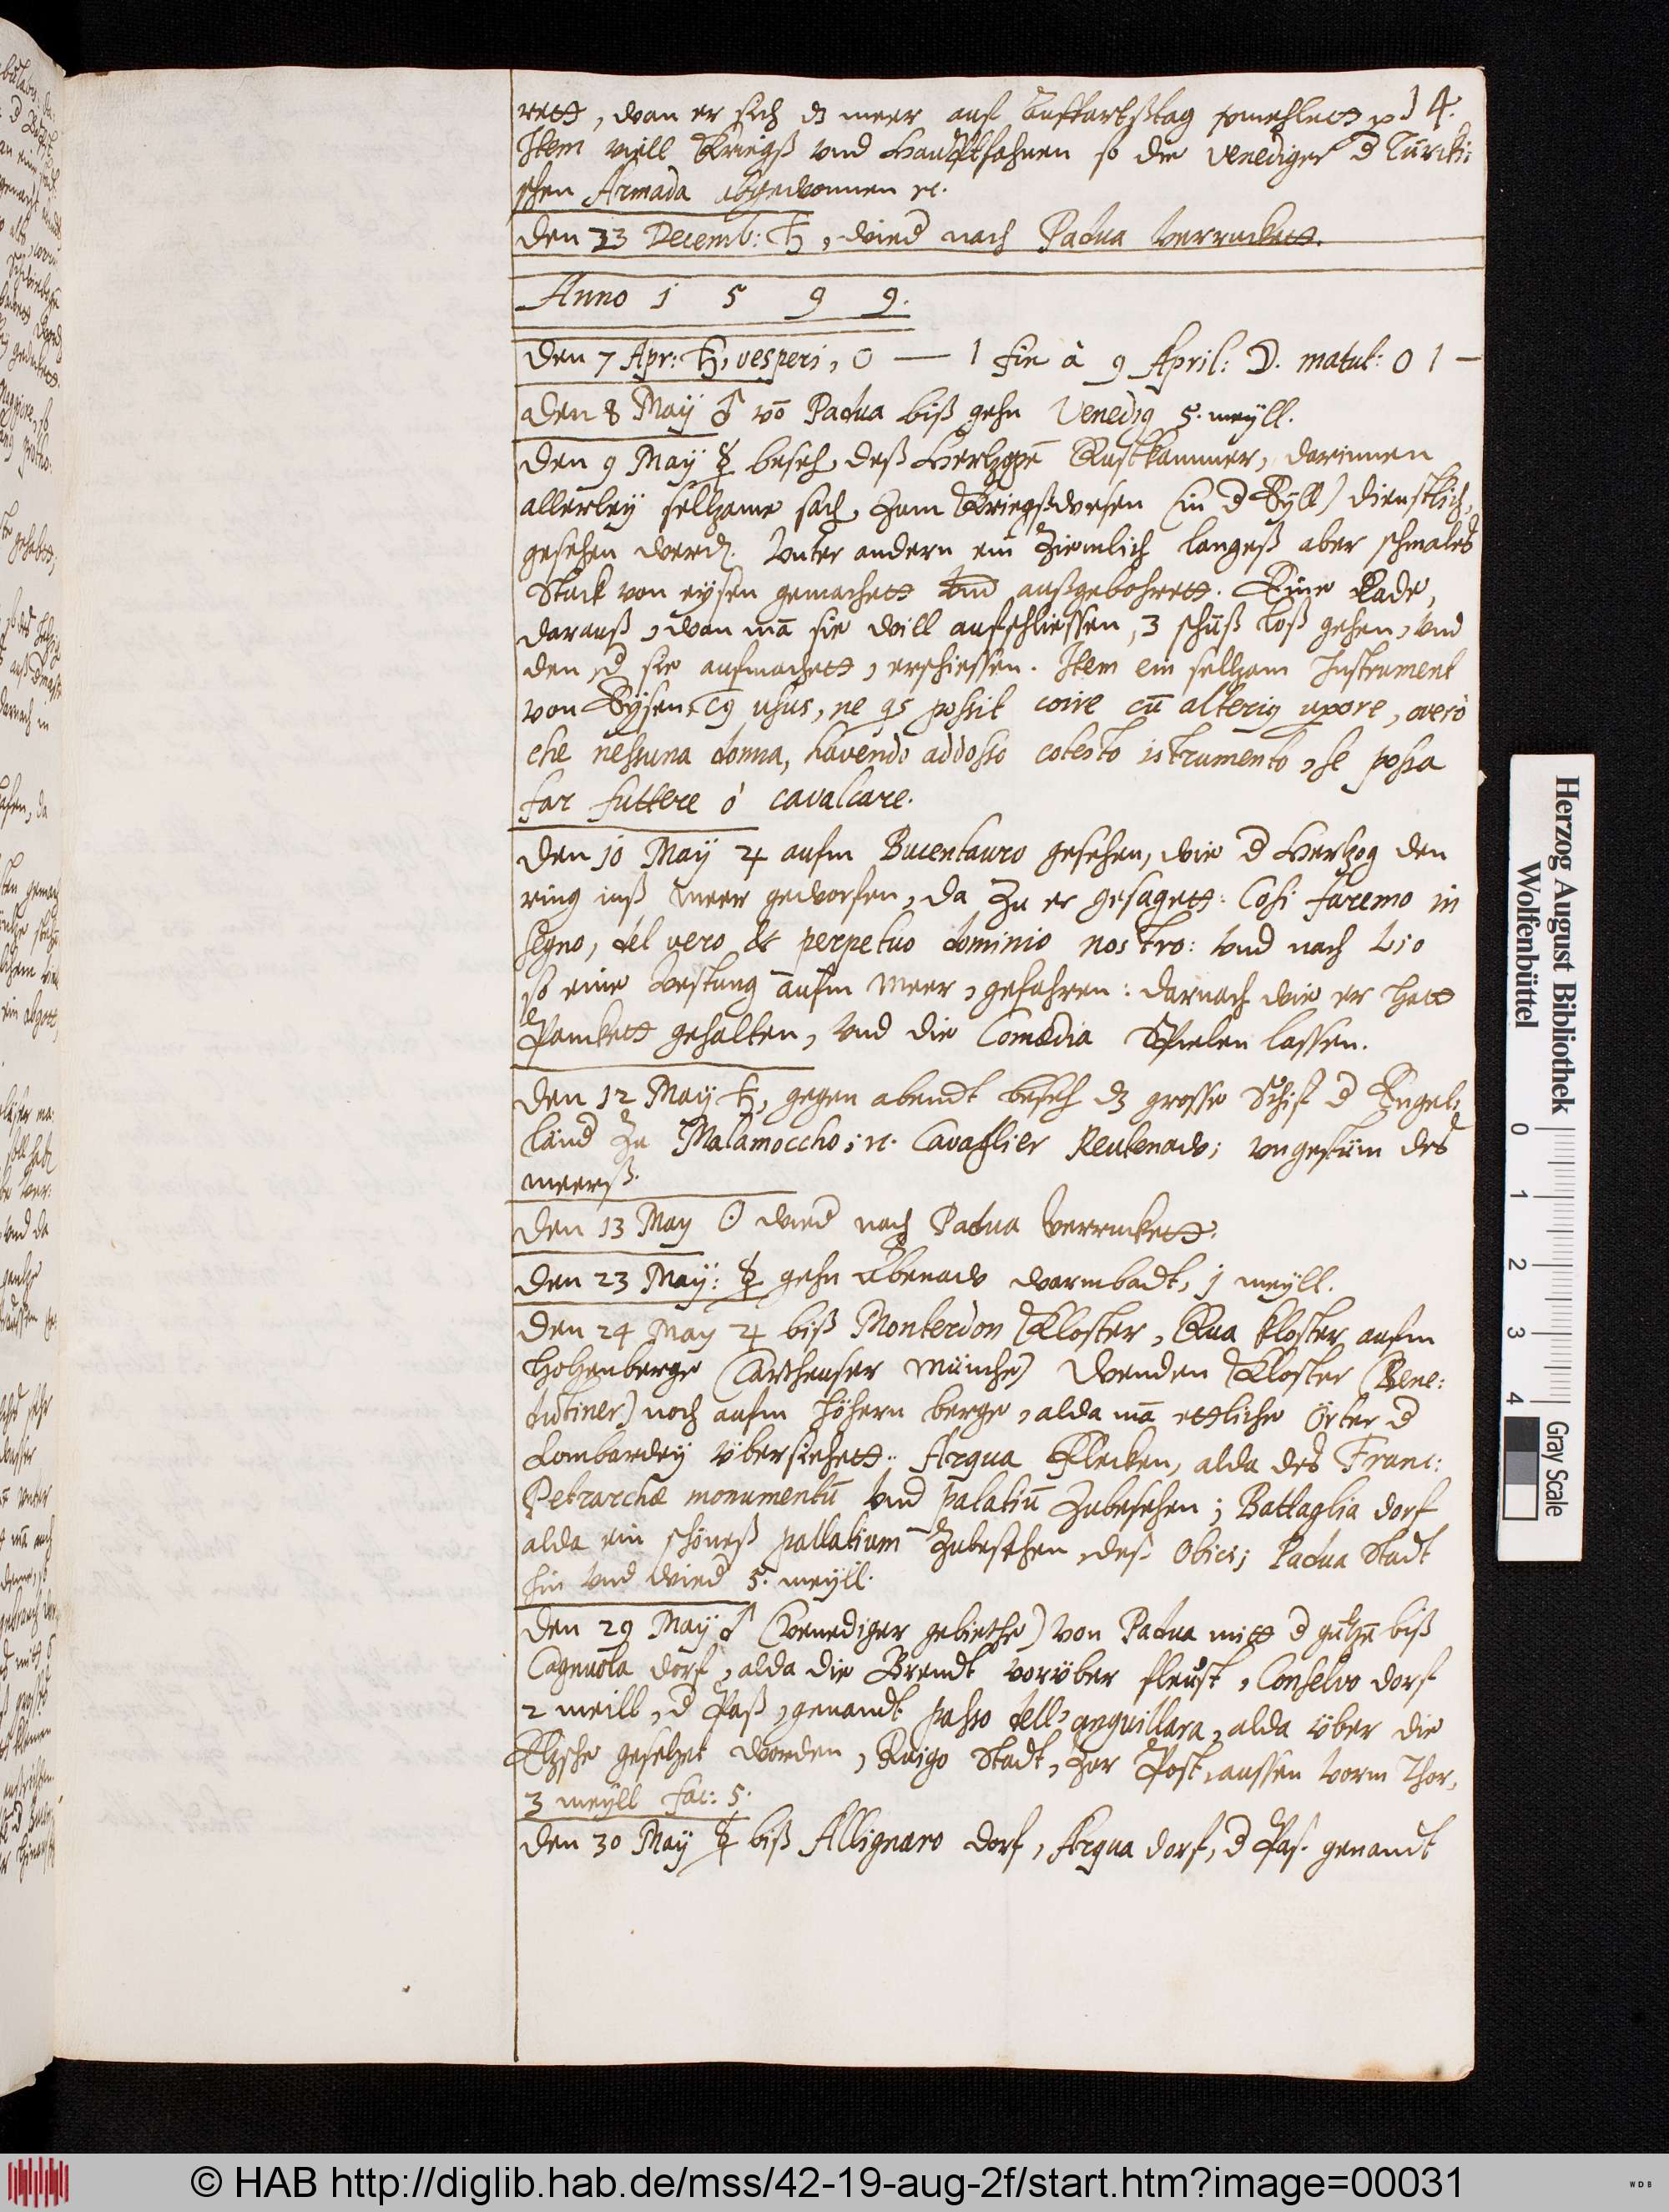 14.
rett, wan er sich dz meer auf auffartßtag vmehlett
Item viell Kriegß vnd Hauptfahnen so die Venediger d Türcki:
schen Armada abgewonnen ꝛc.
Den 23 Decemb: ♄, wied nach Padua verruckett.
Anno 1 5 9 9.
Den 7 Apr: ♄, vesperi, 0 — 1 fin à 9 April: ☽. matut: 0 1 —
Den 8 Maÿ ♂ vō Padua biß gehn Venedig 5. meÿll.
Den 9 Maÿ ☿ beseh, deß Hertzogē Rustkammer, darinnen
allerleÿ seltzame sach, zum Kriegßwesen (in d Eÿll) dienstlich,
gesehen werdē. Vnter andern ein ziemlich langeß aber schmales
Stuck von eysen gemachett vnd außgebohrett. Eine Lade,
darauß, wan mā sie will aufschliessen, 3 schuß loß gehen, vnd
den, d sie aufmachett, erschiessen. Item ein seltzam Instrument
von Eÿsen, cꝰ usus, ne qs possit coire cū alteriꝰ uxore, overò
che nessuna donna, havendo addosso cotesto istrumento, se possa
far futtere ò cavalcare.
Den 10 Maÿ ♃ aufm Bucentauro gesehen, wie d Hertzog den
ring inß meer geworfen, da zu er gesagett: Cosi faremo in
segno, del vero & perpetuo dominio nostro: vnd nach Lio
so eine Vestung aufm meer, gefahren: darnach wie er hatt
Panckett gehalten, vnd die Comœdia spielen lassen.
Den 12 Maÿ ♄, gegen abendt beseh dz grosse Schif d Engel:
länd zu Malamoccho; ꝛc. Cavaglier Reutenaw; vngestüm des
meerß.
Den 13 May ☉ wied nach Padua verruckett.
Den 23 Maÿ: ☿ gehn Abenaw warmbadt, 1 meÿll.
Den 24 May ♃ biß Monterdon Kloster, Rua kloster aufm
hohenberge (Cartheuser Münche) Wenden Kloster (Bene:
dictiner) noch aufm höhern berge, alda mā ettliche örter d
Lombardeÿ übersiehett. Arqua Flecken, alda des Franc:
Petrarchæ monumentū vnd palatiū zubesehen; Battaglia dorf
alda ein schöneß pallatium zubesehen, deß Obici; Padua Stadt
hin vnd wied 5. meÿll.
Den 29 Maÿ ♂ (Venediger gebiethe) von Padua mitt d gutzē biß
Cagnuola dorf, alda die Brendt vorüber fleust, Conselvo dorf
2 meill, d Paß, genandt passo dell' anguillara, alda über die
Etzsche gesetzet worden, Ruigo Stadt, zur Post, aussen vorm Thor,
3 meÿll fac: 5.
Den 30 Maÿ ☿ biß Allignaro dorf, Arqua dorf, d Paß genandt
Herzog August Bibliothek
Wolfenbüttel
0 1 2 3 4
Gray Scale
© HAB http://diglib.hab.de/mss/42-19-aug-2f/start.htm?image=00031
WDB